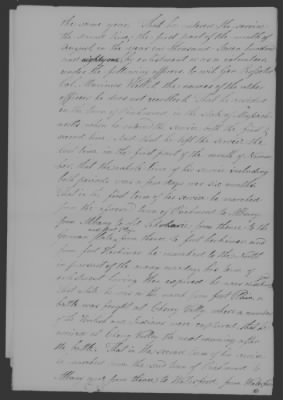 the same year. That he entered the service
the second time, the first part of the month of
August in the year one thousand seven hundred
and eighty one by enlistment as a volunteer
under the following officers to wit Gen
Col. Marinus Willett the names of the other
officers he does not recollect. That he resided
in the town of Richmond in the State of Massachu-
setts when he entered the service both the first &
second time. And that he left the service the
2nd time in the first part of the month of Novem-
ber, that the whole time of his service including
both periods was a few days over six months
That in the first term of his service he marched
from the aforesaid town of Richmond to Albany
from Albany to Schoharie from thence to the
German flats from thence to fort Herkimer and
from fort Herkimer he marched to the North
in pursuit of the enemy his term of
enlistment having then expired he was
that while he was on the march from fort Plain a
battle was fought at Cherry Vally where a number
of the British and Indians were that he
arrived at Cherry Valley the next morning after
the battle. That in the second term of his service
he marched from the said town of Richmond to
Albany and from thence to Waterford, from